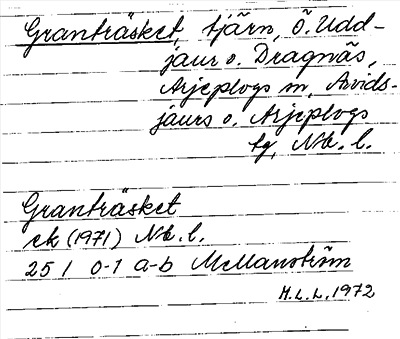 Granträsket, tjärn, Ö. Udd-
jaur o. Dragnäs,
Arjeplogs m, Arvids-
jaurs o. Arjeplogs
tg, Nb. l.
Granträsket
ek (1971) Nb. l.
25 I 0-1 a-b McManström
M.L.L. 1972